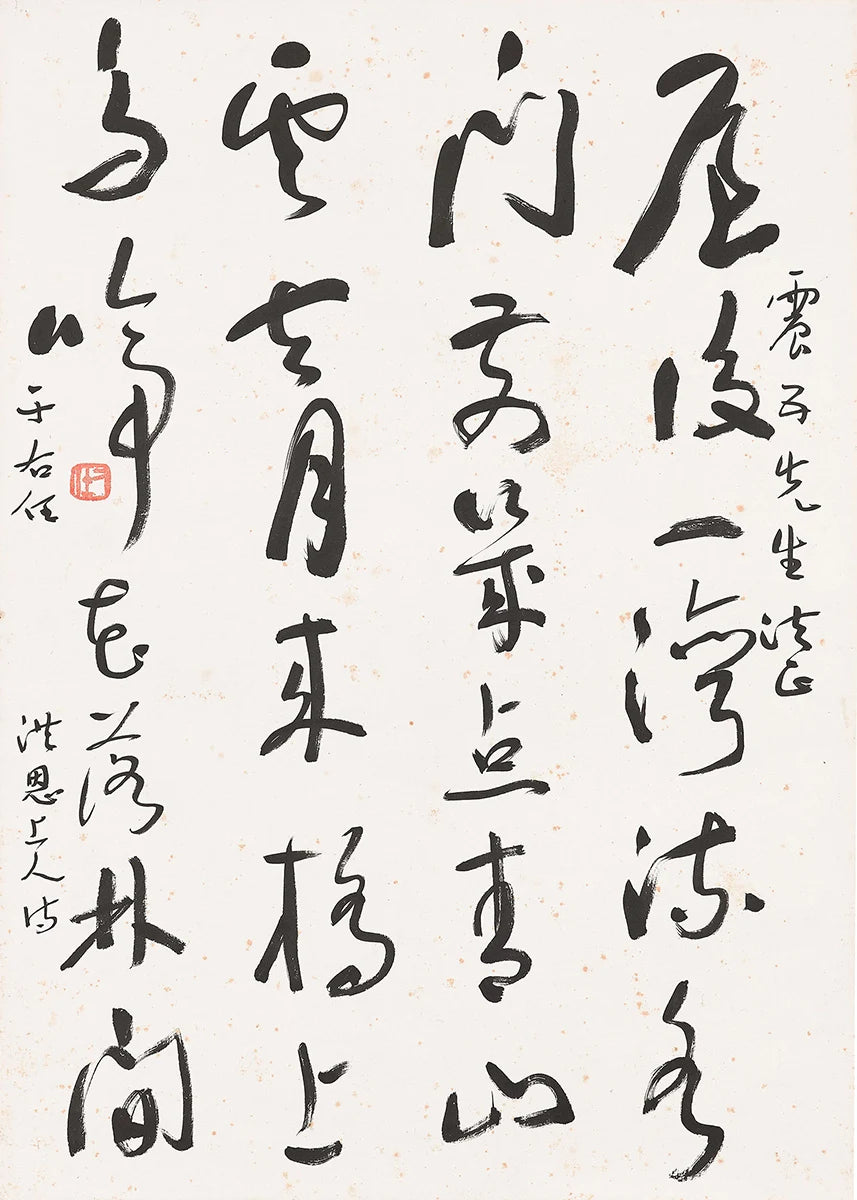 震五先生法正
屋後一灣流水
門前幾点青山
雲去月來橋上
鳥啼花落林間
洪恩上人詩
于右任